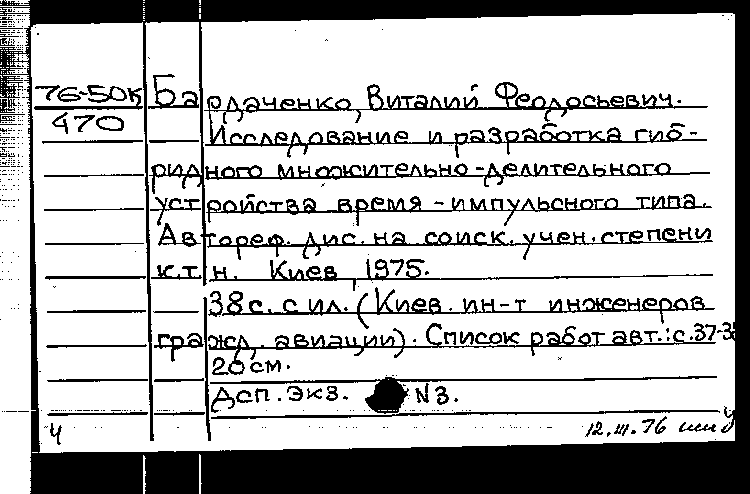 76-50К Бардаченко, Виталий Феодосьевич.
470
Исследование и разработка гиб-
ридного множительно-делительного
устройства время-импульсного типа.
Автореф. дис. на соиск. учен. степени
к.т.н. Киев, 1975.
38 с. с ил. (Киев. ин-т инженеров
гражд. авиации). Список работ авт.: с.37-38
20 см.
Дсп. Экз. N3.
ч 12.III.76